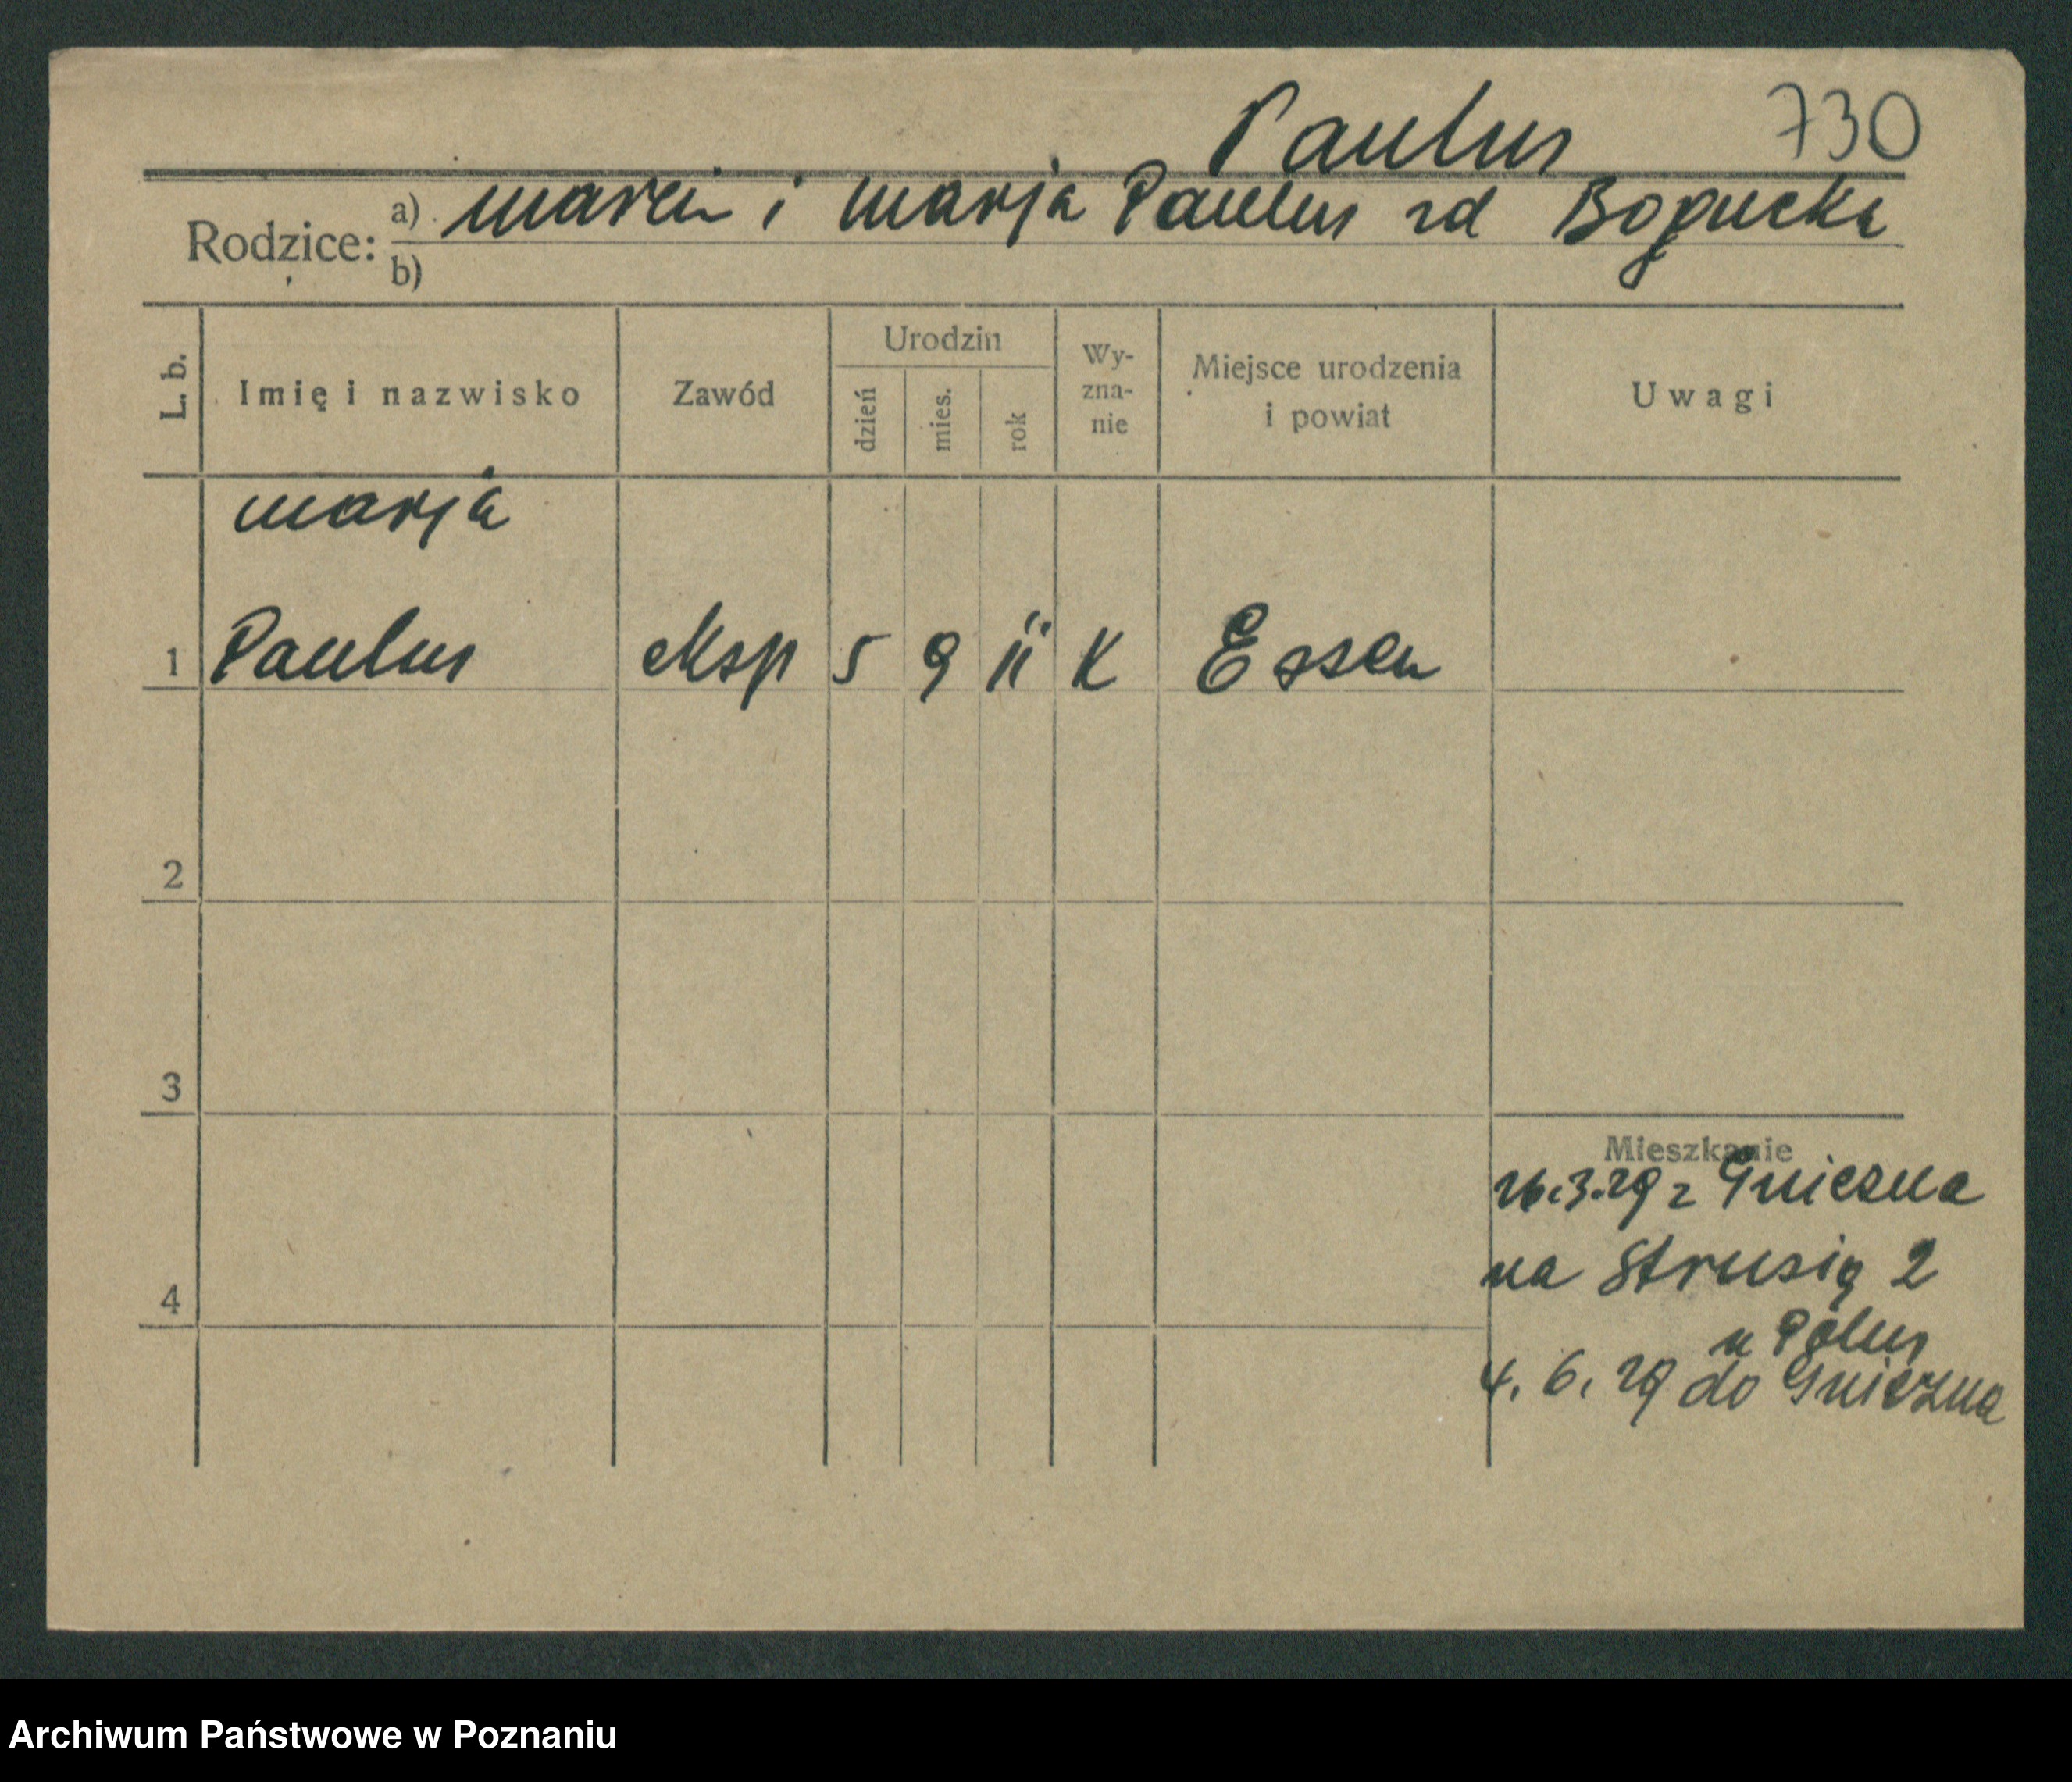 Paulus 730
Rodzice: a) Marcin i Marja Paulus zd Bogucka
b)
L. b. Imię i nazwisko Zawód Urodzin dzień mies. rok Wy-zna-nie Miejsce urodzenia i powiat Uwagi
Marja
1 Paulus eksp 5 9 11 K Essen
2
3
Mieszkanie
26.3.29 z Gniezna
na Strusią 2
4
u Polus
4. 6. 29 do Gniezna
Archiwum Państwowe w Poznaniu